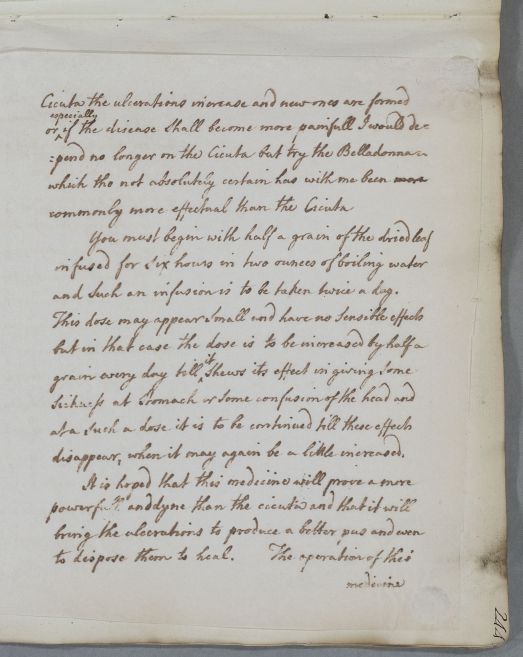 Cicuta the ulcerations increase and new ones are formed
especially
or if the disease shall become more painfull I would de-
:pend no longer on the Cicuta but try the Belladonna -
which tho not absolutely certain has with me been more
commonly more effectual than the Cicuta
You must begin with half a grain of the dried leaf
infused for six hours in two ounces of boiling water
and such an infusion is to be taken twice a day.
This dose may appear small and have no sensible effects
but in that case the dose is to be increased by half a
grain every day till it shews its effect in giving some
sickness at stomach or some confusion of the head and
at a such a dose it is to be continued till these effects
disappear, when it may again be a little increased.
It is hoped that this medicine will prove a more
powerfull anodyne than the cicuta and that it will
bring the ulcerations to produce a better pus and even
to dispose them to heal. The operation of this
medicine